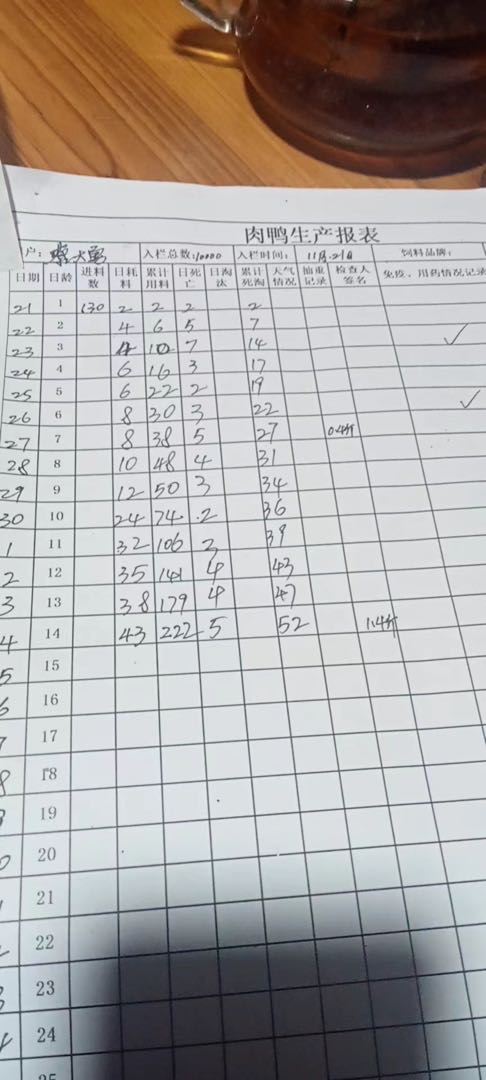 肉鸭生产报表
户: 大勇 入栏总数:10000 入栏时间: 11月.21日 饲料品牌:
日期 日龄 进料数 日耗料 累计用料 日死亡 日淘汰 累计死淘 天气情况 抽重记录 检查人签名 免疫、用药情况记录
21 1 130 2 2 2 2
22 2 4 6 5 7
23 3 4 10 7 14 ✓
24 4 6 16 3 17
25 5 6 22 2 19
26 6 8 30 3 22 ✓
27 7 8 38 5 27 0.4斤
28 8 10 48 4 31
29 9 12 50 3 34
30 10 24 74 2 36
1 11 32 106 3 39
2 12 35 141 4 43
3 13 38 179 4 47
4 14 43 222 5 52 1.4斤
5 15
6 16
7 17
8 18
19
20
21
22
23
24
25